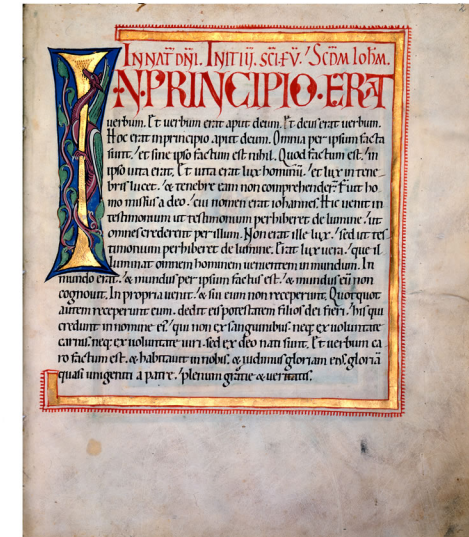 IN NAT̄ DN̄I. INITIŪ. SC̄I. EV̄. SC̄DM IOHM̄.
IN·PRINCIPIO·ERAT
uerbum. Et uerbum erat aput deum. Et deus erat uerbum.
Hoc erat in principio aput deum. Omnia per ipsum facta
sunt. et sine ipso factum est nihil. Quod factum est. in
ipso uita erat. Et uita erat lux hominū. et lux in tene-
bris lucet. & tenebre eam non comprehender̄. Fuit ho
mo missus a deo. cui nomen erat iohannes. Hic uenit in
testimonium ut testimonium perhiberet de lumine. ut
omnes crederent per illum. Non erat ille lux. sed ut tes
timonium perhiberet de lumine. Erat lux uera. que il
luminat omnem hominem uenientem in mundum. In
mundo erat. & mundus per ipsum factus est. & mundus eū non
cognouit. In propria uenit. & sui eum non receperunt. Quotquot
autem receperunt eum. dedit eis potestatem filios dei fieri. his qui
credunt in nomine ei'. qui non ex sanguinibus. neq; ex uoluntate
carnis. neq; ex uoluntate uiri. sed ex deo nati sunt. Et uerbum ca
ro factum est. & habitauit in nobis. & uidimus gloriam eius. gloriā
quasi unigeniti a patre. plenum gratie & ueritatis.